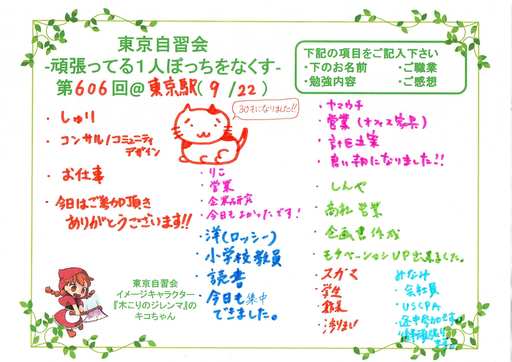 東京自習会
-頑張ってる1人ぼっちをなくす-
第606回@東京駅(9/22)
下記の項目をご記入下さい
・下のお名前 ・ご職業
・勉強内容 ・ご感想
30才になりました!!
・しゅり
・コンサル/コミュニティ
デザイン
・お仕事
・今日はご参加頂き
ありがとうございます!!
・りこ
・営業
・企業研究
・今日もよかったです!
・洋(ロッシー)
・小学校教員
・読書
・今日も集中
できました。
・ヤマウチ
・営業(オフィス家具)
・計画立案
・良い朝になりました!!
・しんや
・商社営業
・企画書作成
・モチベーションUP出来ました。
・スガマ
・学生
・みなみ
・会社員
・USCPA
東京自習会
イメージキャラクター
『木こりのジレンマ』の
キコちゃん